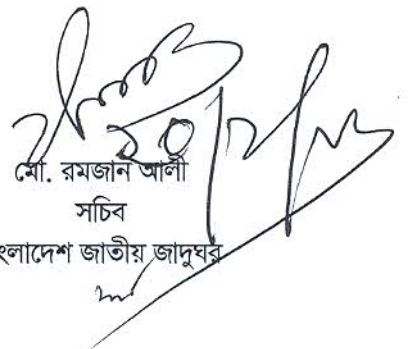 মো. রমজান আলী
সচিব
ংলাদেশ জাতীয় জাদুঘর